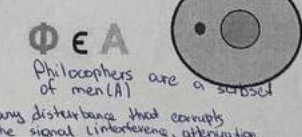 Φ ϵ A
Philocophers are a subset
of men(A)
any disturbance that corrupts
the signal (interference, attenuation